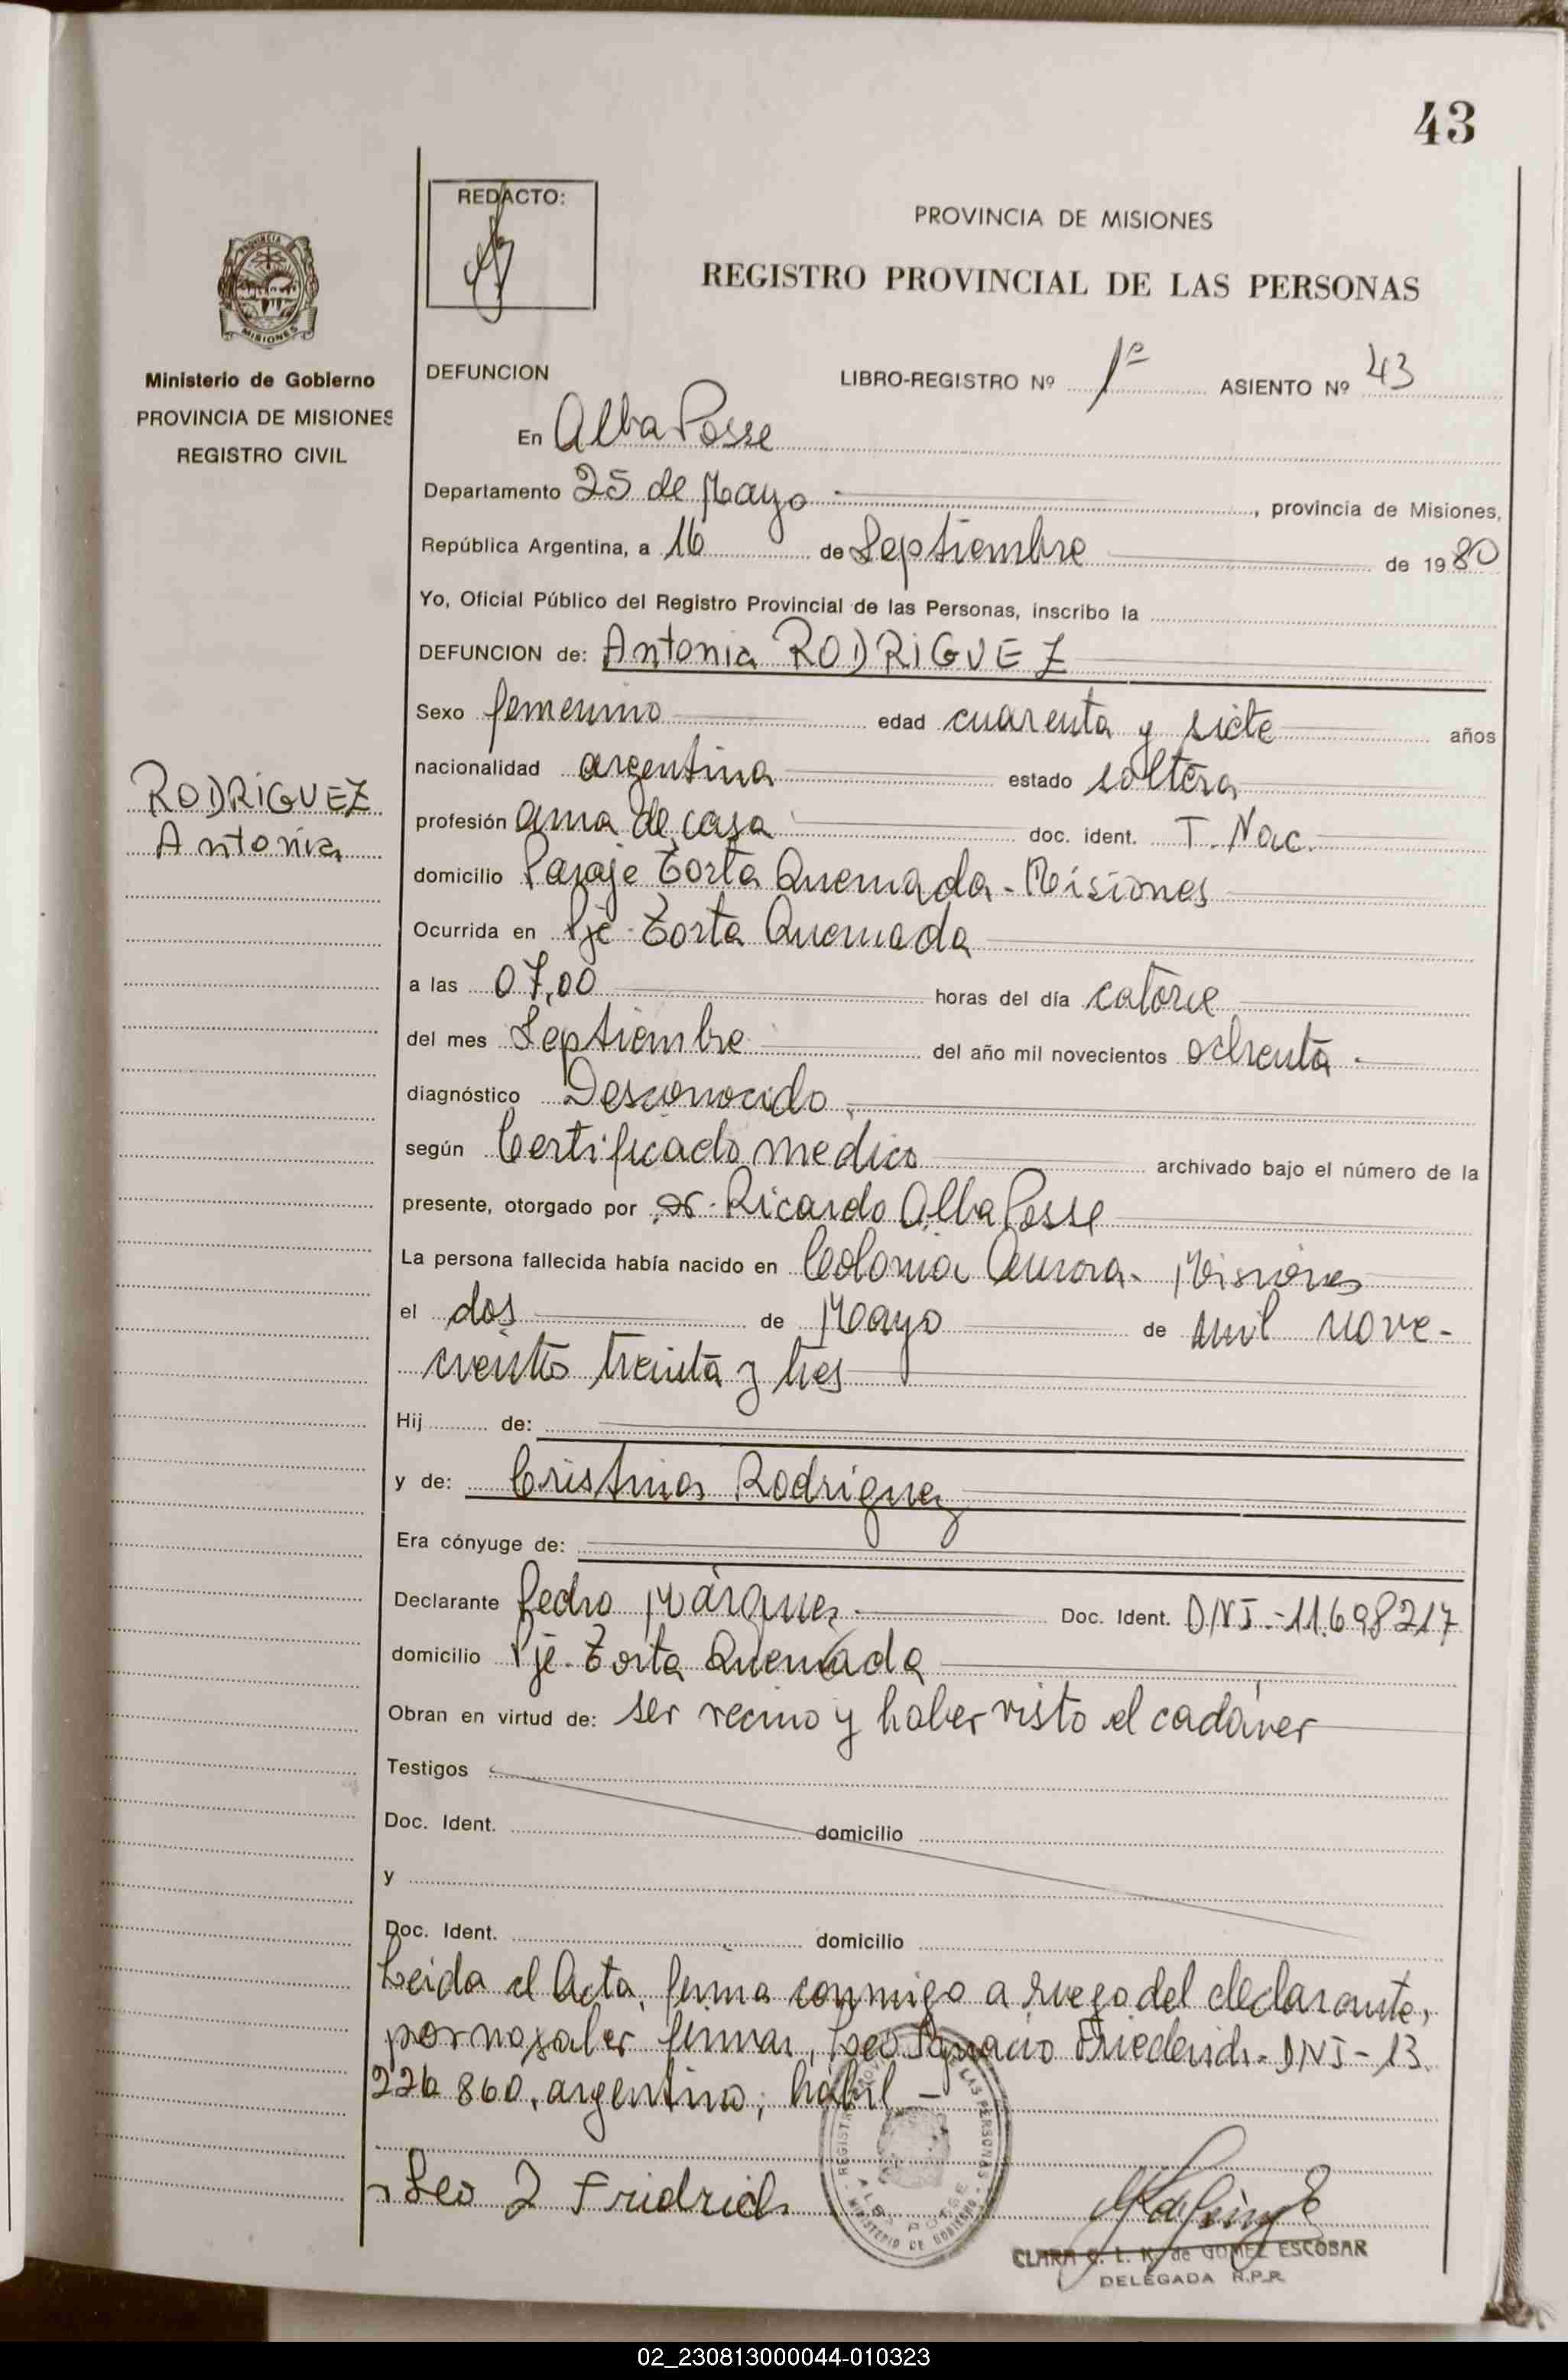 43
REDACTO:
PROVINCIA DE MISIONES
REGISTRO PROVINCIAL DE LAS PERSONAS
MISIONES
Ministerio de Gobierno
PROVINCIA DE MISIONES
REGISTRO CIVIL
DEFUNCION
LIBRO-REGISTRO Nº 1º ASIENTO Nº 43
En Alba Posse
Departamento 25 de Mayo , provincia de Misiones,
República Argentina, a 16 de Septiembre de 1980
Yo, Oficial Público del Registro Provincial de las Personas, inscribo la
DEFUNCION de: Antonia RODRIGUEZ
Sexo femenino edad cuarenta y siete años
nacionalidad argentina estado soltera
RODRIGUEZ
Antonia
profesión ama de casa doc. ident. T. Nac.
domicilio Paraje Torta Quemada - Misiones
Ocurrida en Pje. Torta Quemada
a las 07,00 horas del día catorce
del mes Septiembre del año mil novecientos ochenta.
diagnóstico Desconocido
según Certificado médico archivado bajo el número de la
presente, otorgado por Dr. Ricardo Alba Posse
La persona fallecida había nacido en Colonia Aurora - Misiones
el dos de Mayo de mil nove-
cientos treinta y tres
Hij de:
y de: Cristina Rodriguez
Era cónyuge de:
Declarante Pedro Márquez Doc. Ident. DNI.-11.698217
domicilio Pje. Torta Quemada
Obran en virtud de: ser vecino y haber visto el cadáver
Testigos
Doc. Ident. domicilio
y
Doc. Ident. domicilio
Leida el Acta, firma conmigo a ruego del declarante,
por no saber firmar, Leo Ignacio Friederich - DNI - 13.
226 860, argentino, hábil -
REGISTRO PROVINCIAL DE LAS PERSONAS
ALBA POSSE
MINISTERIO DE GOBIERNO
Leo I Fridrich
CLARA G. L. K. de GOMEZ ESCOBAR
DELEGADA R.P.P.
02_230813000044-010323